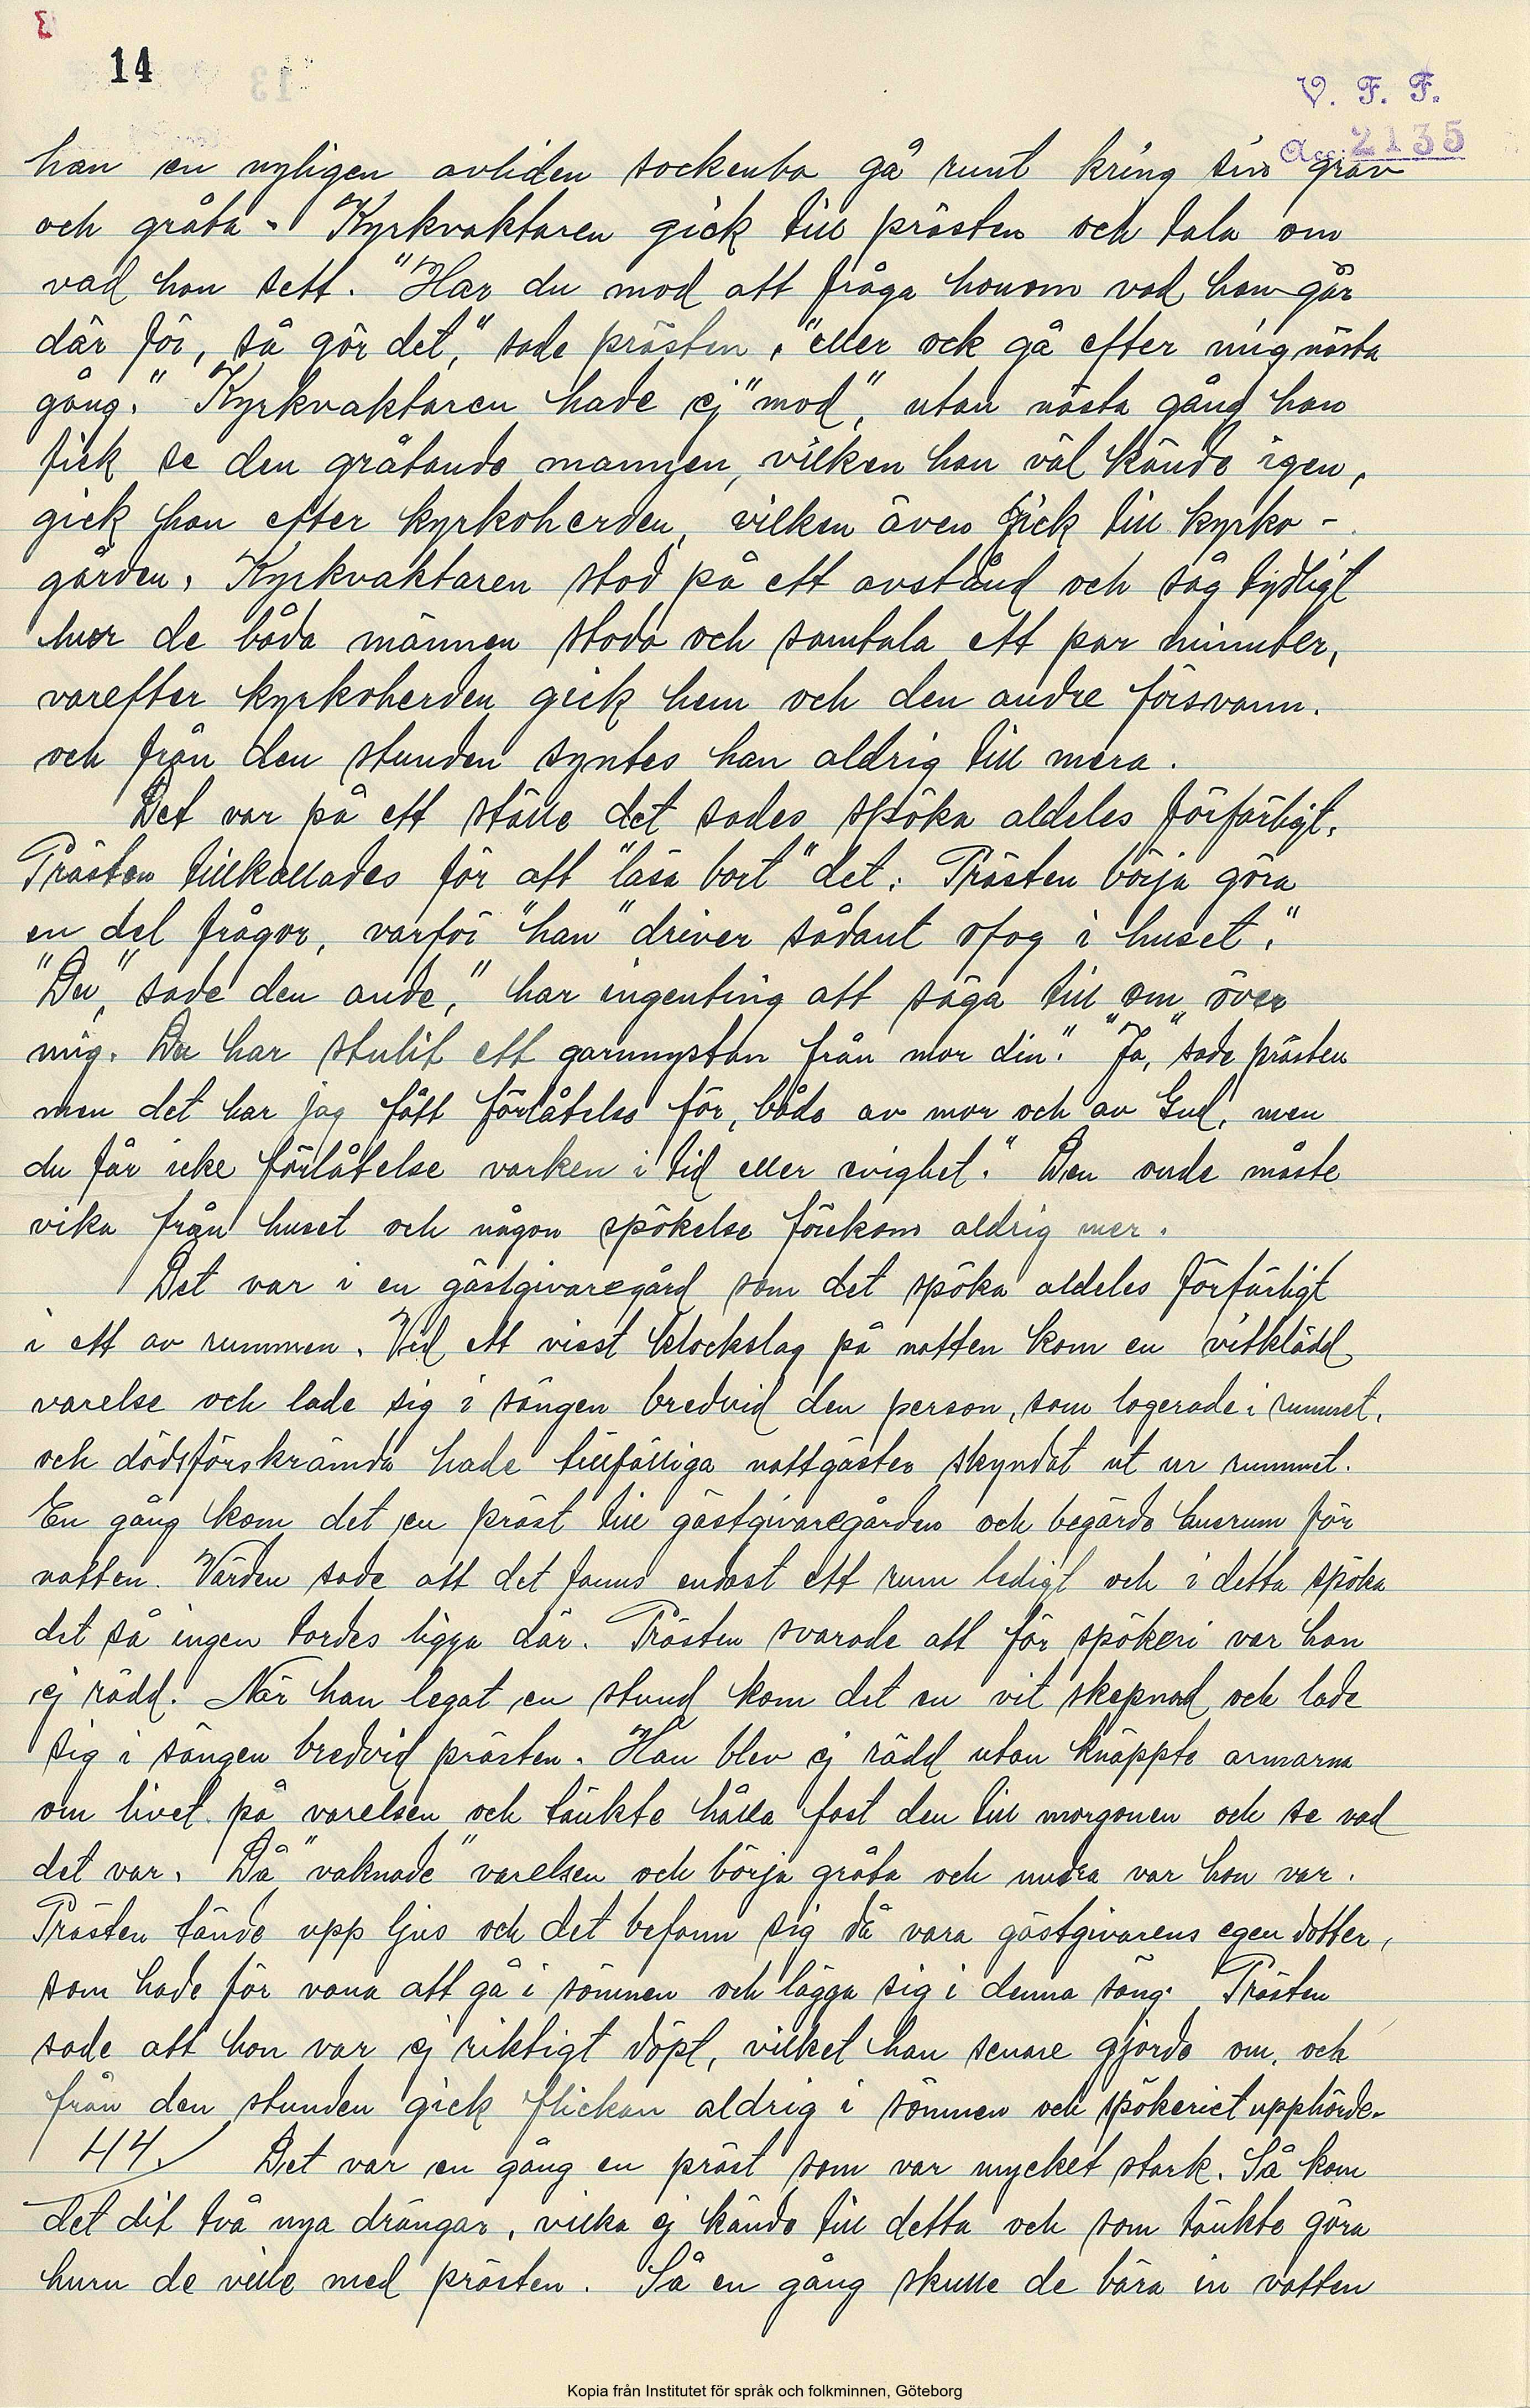 14
V. F. F.
Acc. 2135
han en nyligen avliden sockenbo gå runt kring sin grav
och gråta. Kyrkvaktaren gick till prästen och tala om
vad han sett. "Har du mod att fråga honom vad han går
där för, så gör det," sade prästen, "eller ock gå efter mig nästa
gång." Kyrkvaktaren hade ej "mod", utan nästa gång han
fick se den gråtande mannen, vilken han väl kände igen,
gick han efter kyrkoherden, vilken även gick till kyrko-
gården. Kyrkvaktaren stod på ett avstånd och såg tydligt
hur de båda männen stodo och samtala ett par minuter,
varefter kyrkoherden gick hem och den andre försvann.
och från den stunden syntes han aldrig till mera.
Det var på ett ställe det sades spöka aldeles förfärligt.
Prästen tillkallades för att "läsa bort" det. Prästen börja göra
en del frågor, varför "han" driver sådant ofog i huset."
"Du", sade den onde, "har ingenting att säga till om över
mig. Du har stulit ett garnnystan från mor din." "Ja," sade prästen
men det har jag fått förlåtelse för, både av mor och av Gud, men
du får icke förlåtelse varken i tid eller evighet." Den onde måste
vika från huset och någon spökelse förekom aldrig mer.
Det var i en gästgivaregård som det spöka aldeles förfärligt
i ett av rummen. Vid ett visst klockslag på natten kom en vitklädd
varelse och lade sig i sängen bredvid den person, som logerade i rummet,
och dödsförskrämda hade tillfälliga nattgäster skyndat ut ur rummet.
En gång kom det en präst till gästgivaregården och begärde husrum för
natten. Värden sade att det fanns endast ett rum ledigt och i detta spöka
det så ingen tordes ligga där. Prästen svarade att för spökeri var han
ej rädd. När han legat en stund kom det en vit skepnad och lade
sig i sängen bredvid prästen. Han blev ej rädd utan knäppte armarna
om livet på varelsen och tänkte hålla fast den till morgonen och se vad
det var. Då "vaknade" varelsen och börja gråta och undra var hon var.
Prästen tände upp ljus och det befann sig då vara gästgivarens egen dotter,
som hade för vana att gå i sömnen och lägga sig i denna säng. Prästen
sade att hon var ej riktigt döpt, vilket han senare gjorde om, och
från den stunden gick flickan aldrig i sömnen och spökeriet upphörde.
44. Det var en gång en präst som var mycket stark. Så kom
det dit två nya drängar, vilka ej kände till detta och som tänkte göra
huru de ville med prästen. Så en gång skulle de bära in vatten
Kopia från Institutet för språk och folkminnen, Göteborg